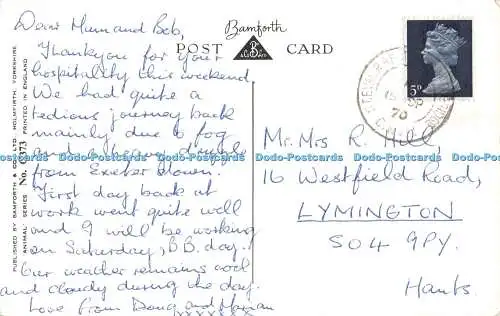 Dear Mum and Bob,
Thankyou for your
hospitality this weekend.
We had quite a
tedious journey back
mainly due to fog
and a heavy drizzle
from Exeter down.
First day back at
work went quite well
and I will be working
on Saturday, B.B. day!
Our weather remains cool
and cloudy during the day.
Love from Doug and
xxxxxxx
Bamforth
POST CARD
B
& CO LTD
PUBLISHED BY BAMFORTH & CO. LTD. HOLMFIRTH, YORKSHIRE
"ANIMAL" SERIES No. 373 PRINTED IN ENGLAND
5D
70
Mr. Mrs R. Hill,
16 Westfield Road,
LYMINGTON
SO4 9PY.
Hants.
Dodo-Postcards Dodo-Postcards Dodo-Postcards Dodo-Postcards Dodo-Postcards Dodo-Postcards